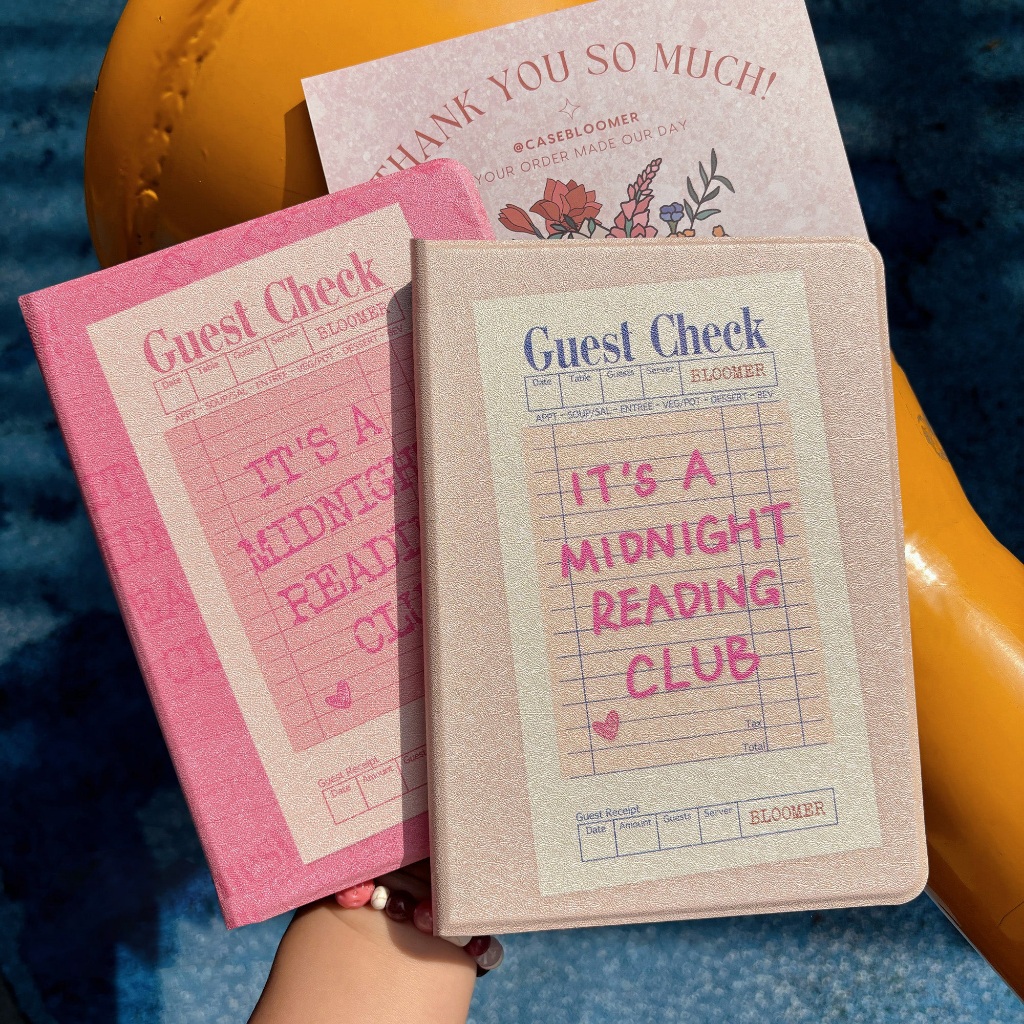 THANK YOU SO MUCH!
@CASEBLOOMER
YOUR ORDER MADE OUR DAY
Guest Check
Date Table Guests Server BLOOMER
APPT - SOUP/SAL - ENTREE - VEG/POT - DESSERT - BEV
IT'S A
MIDNIGH
READI
CLU
Guest Receipt
Date Amount Guests
Guest Check
Date Table Guests Server BLOOMER
APPT - SOUP/SAL - ENTREE - VEG/POT - DESSERT - BEV
IT'S A
MIDNIGHT
READING
CLUB
Tax
Total
Guest Receipt
Date Amount Guests Server BLOOMER